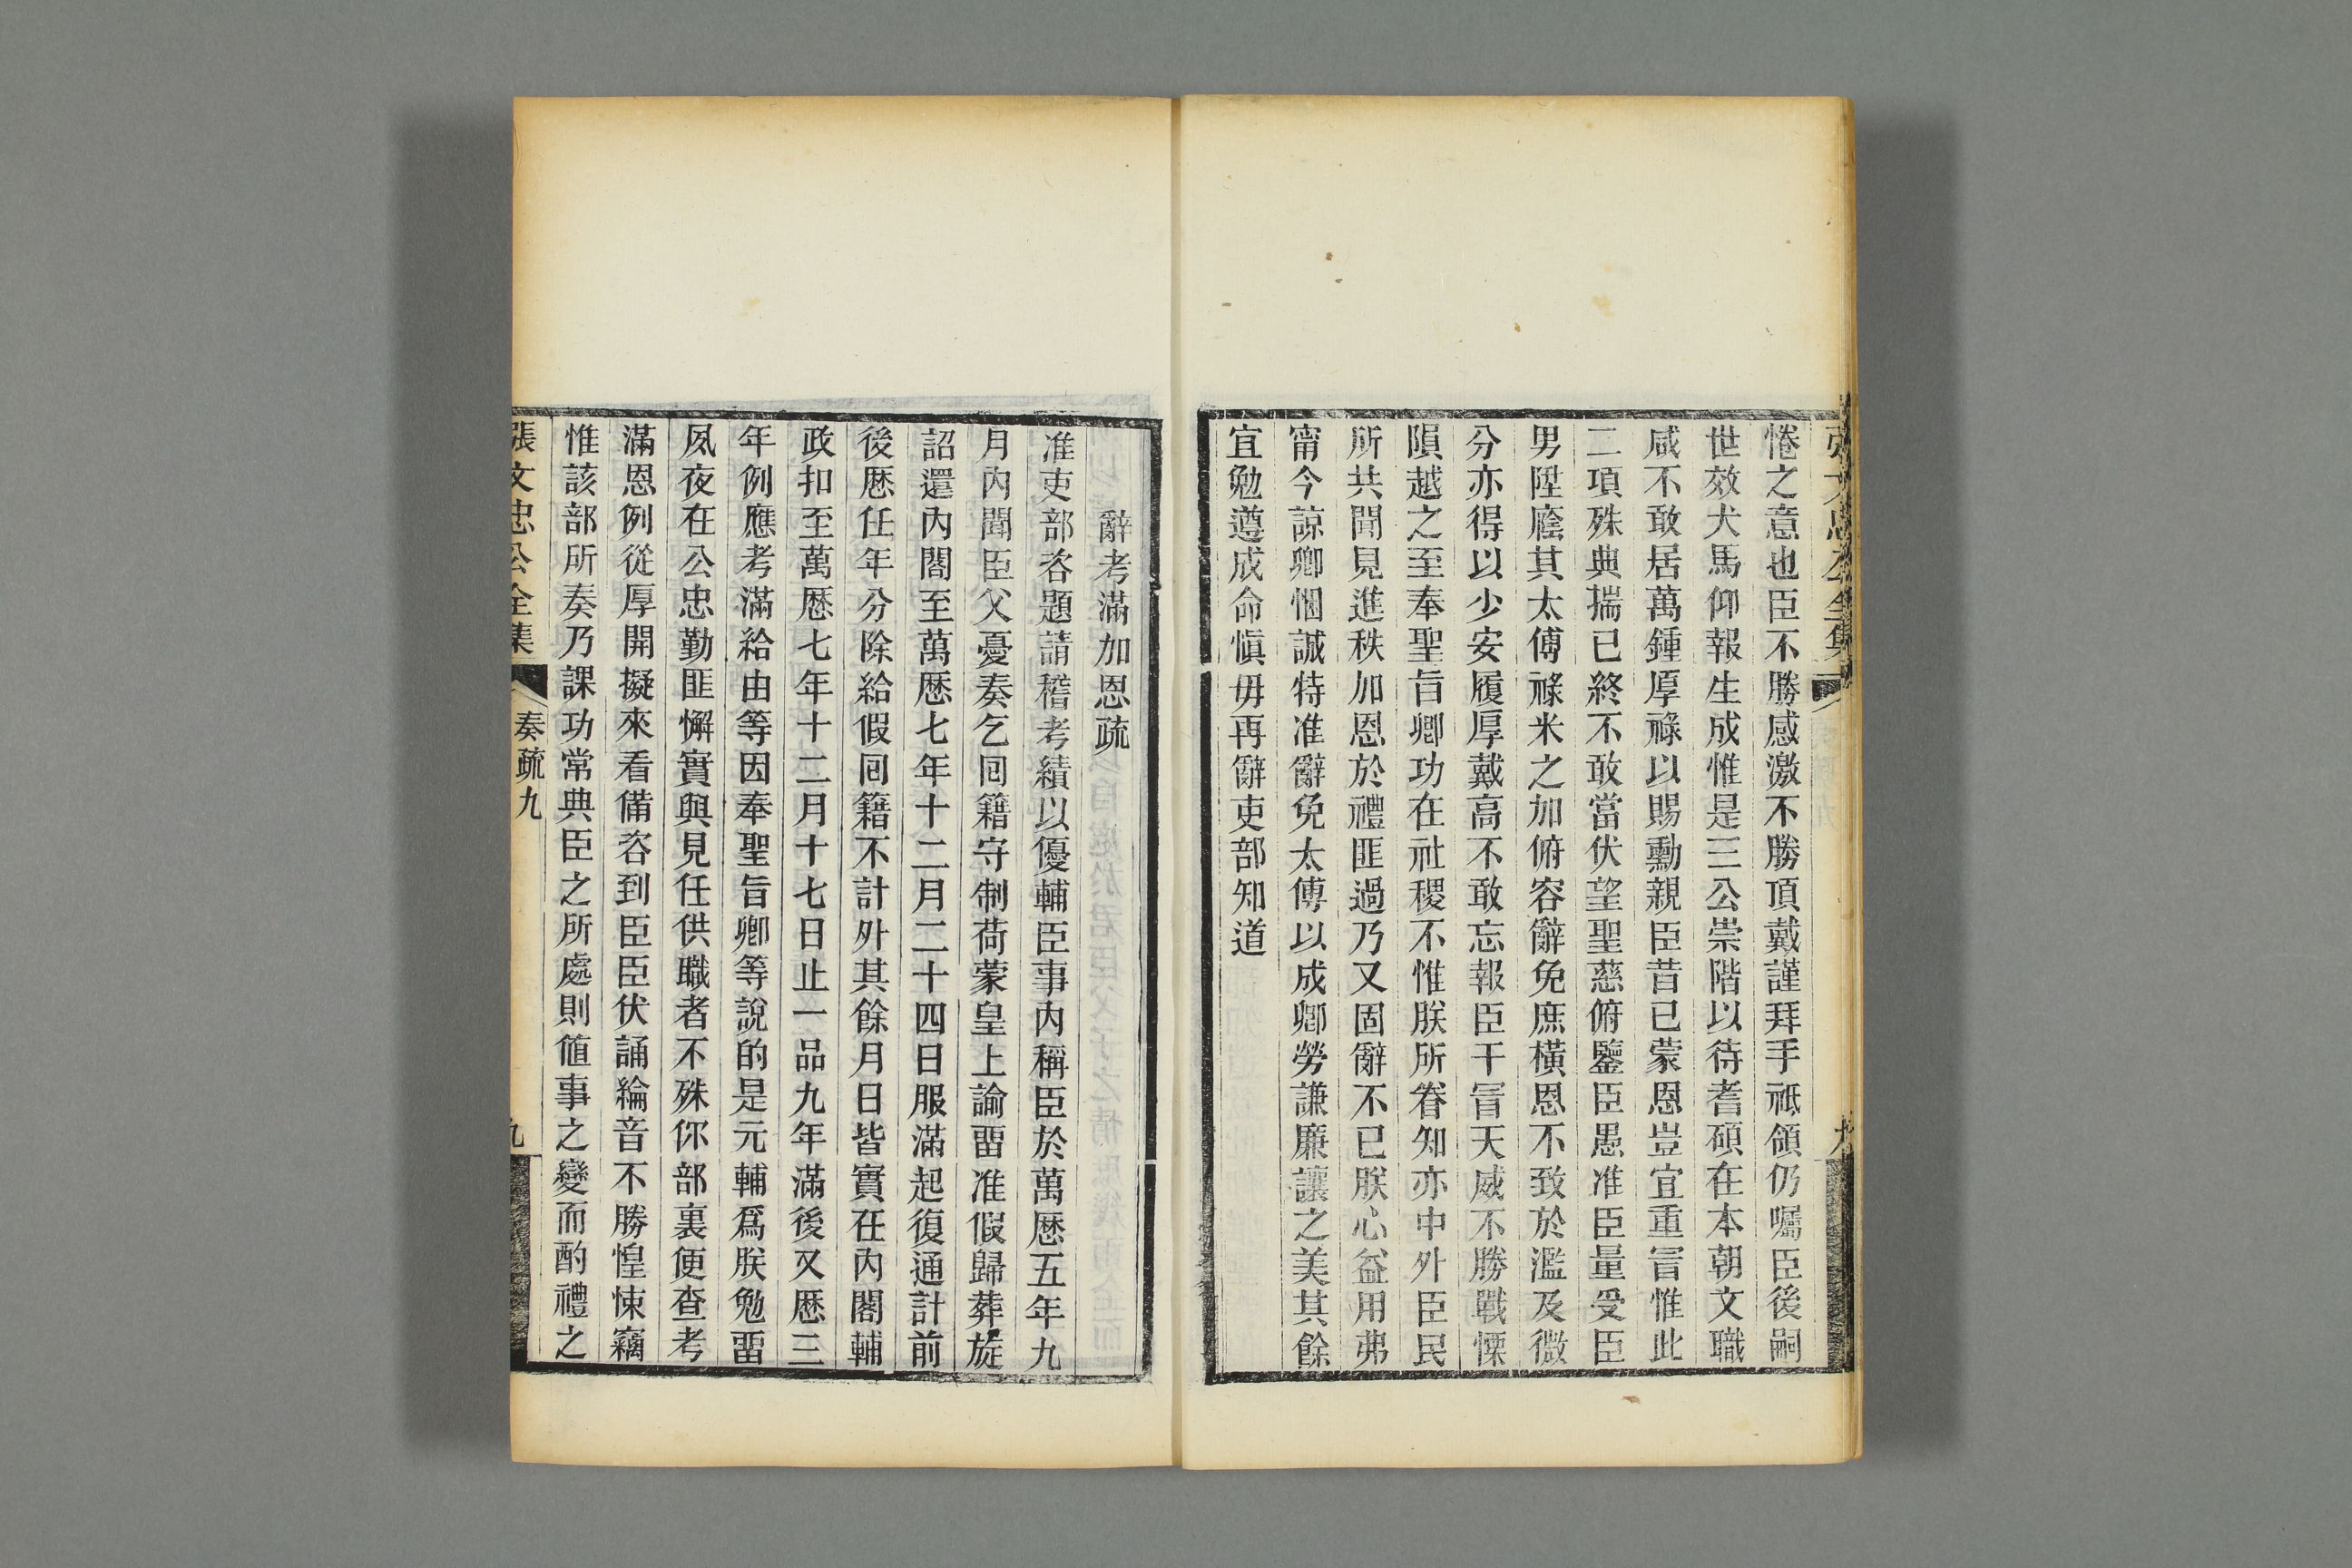 惓之意也臣不勝感激不勝頂戴謹拜手祗領仍囑臣後嗣
世效犬馬仰報生成惟是三公崇階以待耆碩在本朝文職
咸不敢居萬鍾厚祿以賜勳親臣昔已蒙恩豈宜重冒惟此
二項殊典揣已終不敢當伏望聖慈俯鑒臣愚准臣量受臣
男陞廕其太傅祿米之加俯容辭免庶橫恩不致於濫及微
分亦得以少安履厚戴高不敢忘報臣干冒天威不勝戰慄
隕越之至奉聖旨卿功在社稷不惟朕所眷知亦中外臣民
所共聞見進秩加恩於禮匪過乃又固辭不已朕心益用弗
甯今諒卿悃誠特准辭免太傅以成卿勞謙廉讓之美其餘
宜勉遵成命愼毋再辭吏部知道
辭考滿加恩疏
准吏部咨題請稽考績以優輔臣事內稱臣於萬厯五年九
月內聞臣父憂奏乞囘籍守制荷蒙皇上諭畱准假歸葬旋
詔還內閣至萬厯七年十二月二十四日服滿起復通計前
後厯任年分除給假囘籍不計外其餘月日皆實在內閣輔
政扣至萬厯七年十二月十七日止一品九年滿後又厯三
年例應考滿給由等因奉聖旨卿等說的是元輔爲朕勉畱
夙夜在公忠勤匪懈實與見任供職者不殊你部裏便查考
滿恩例從厚開擬來看備咨到臣臣伏誦綸音不勝惶悚竊
惟該部所奏乃課功常典臣之所處則値事之變而酌禮之
張文忠公全集
奏疏九
九